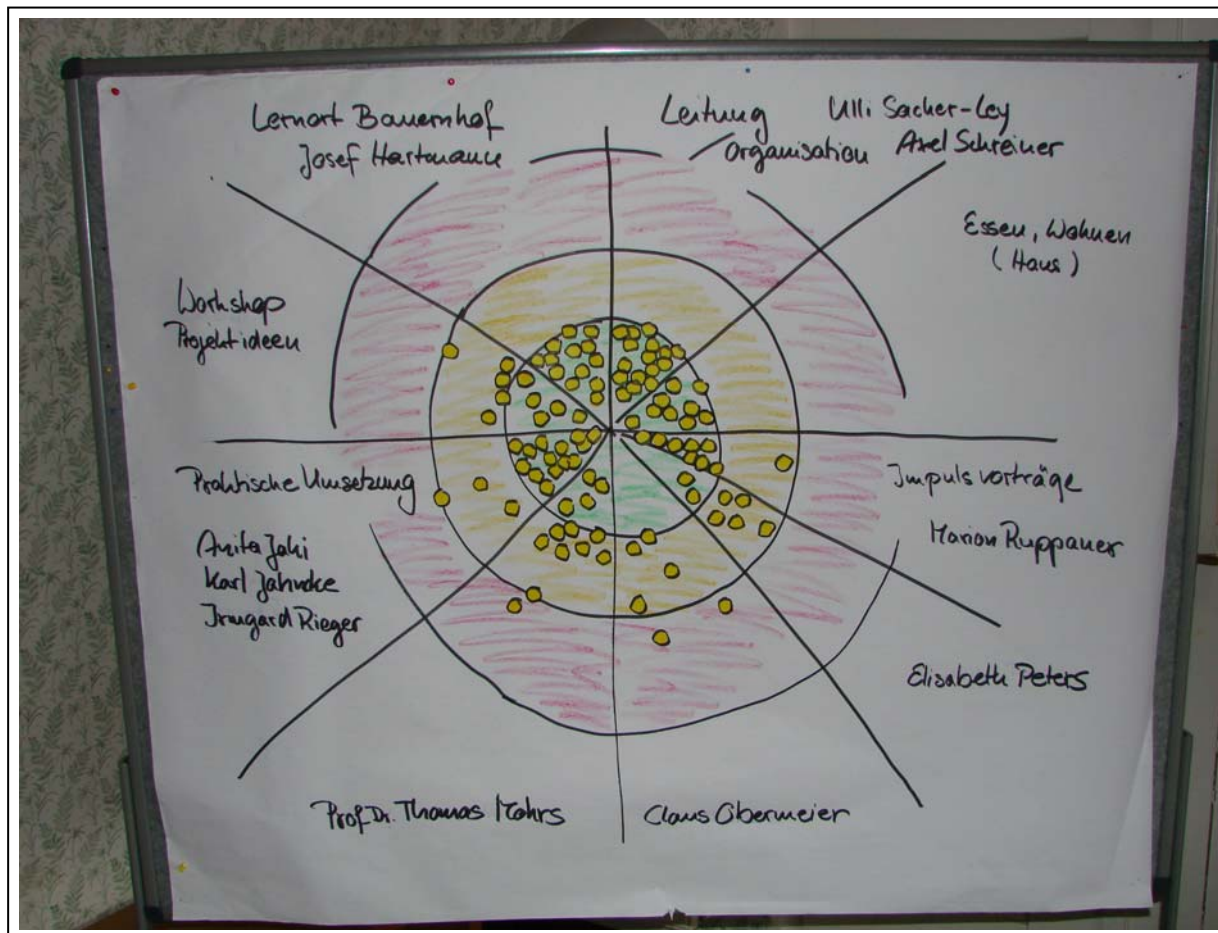 Lernort Bauernhof
Josef Hartmann
Leitung
Organisation
Ulli Sacher-Ley
Axel Schreiner
Essen, Wohnen
(Haus)
Workshop
Projektideen
Praktische Umsetzung
Anita
Karl Jahncke
Irmgard Rieger
Impulsvorträge
Marion Ruppaner
Elisabeth Peters
Prof Dr. Thomas Mohrs
Claus Obermeier